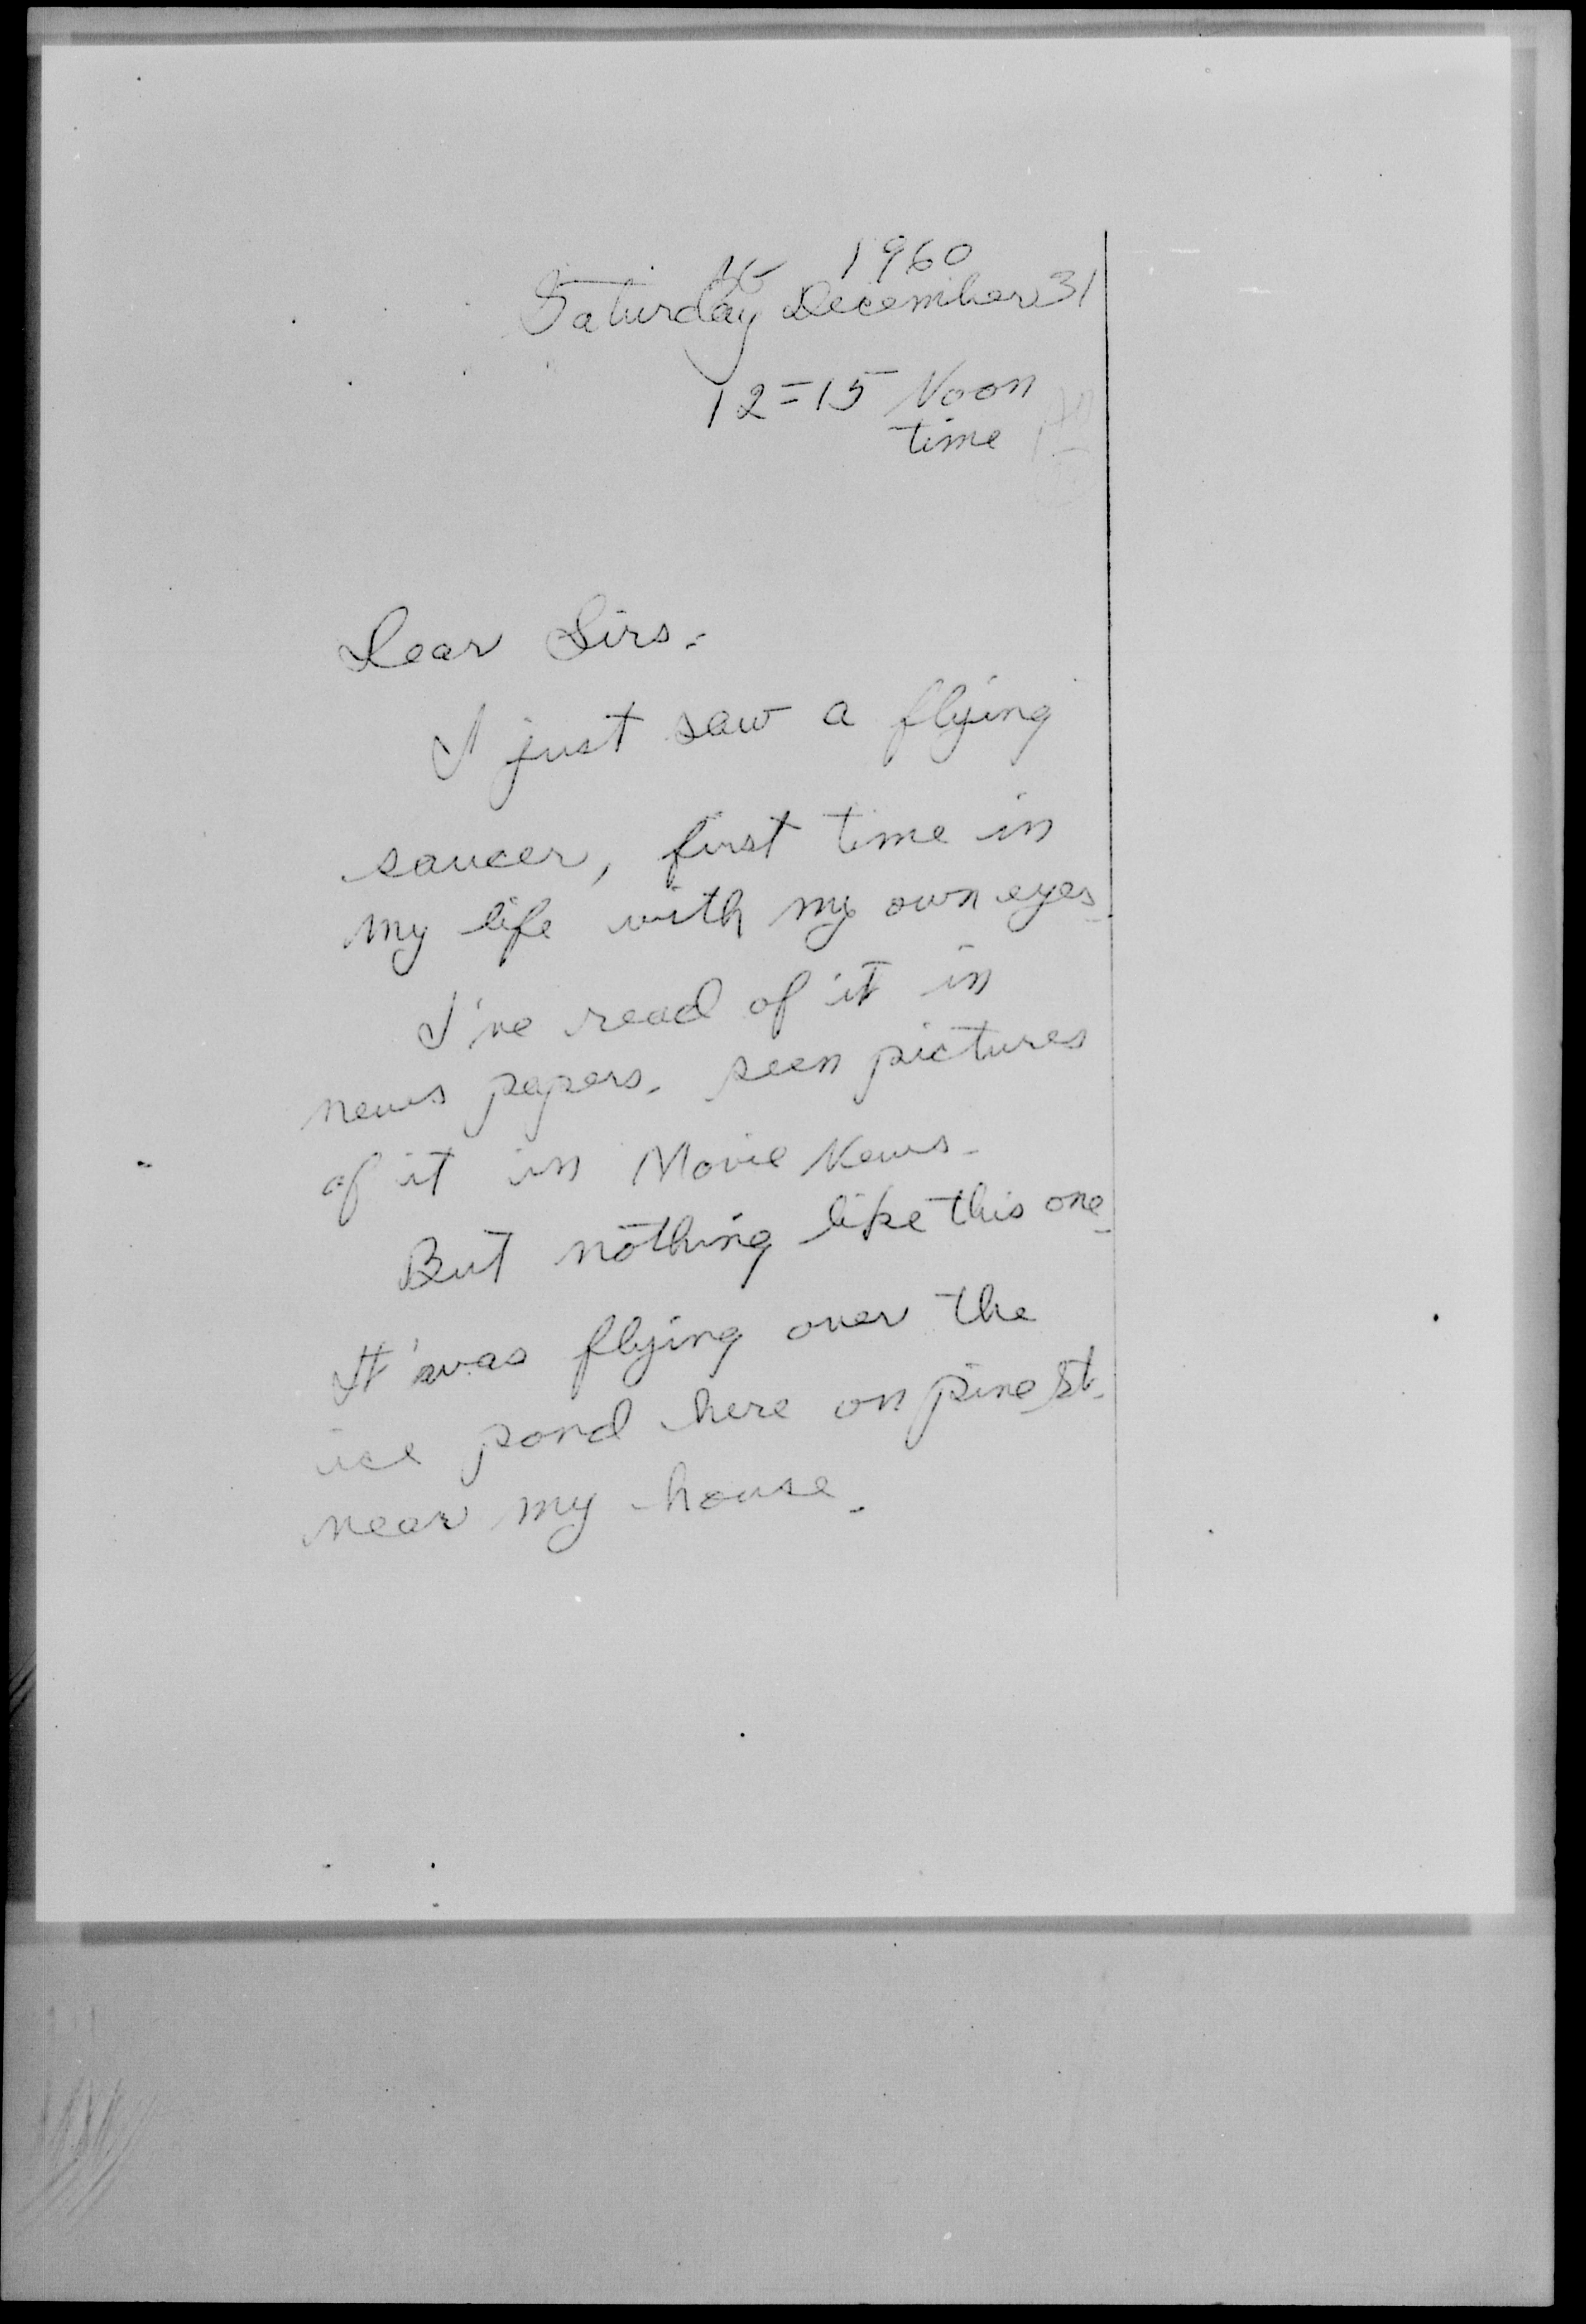 1960
Saturday December 31
12=15 Noon
time
Dear Sirs.
I just saw a flying
saucer, first time in
my life with my own eyes.
I've read of it in
news papers. seen pictures
of it in Movie News.
But nothing like this one.
It was flying over the
ice pond here on pine St.
near my house.